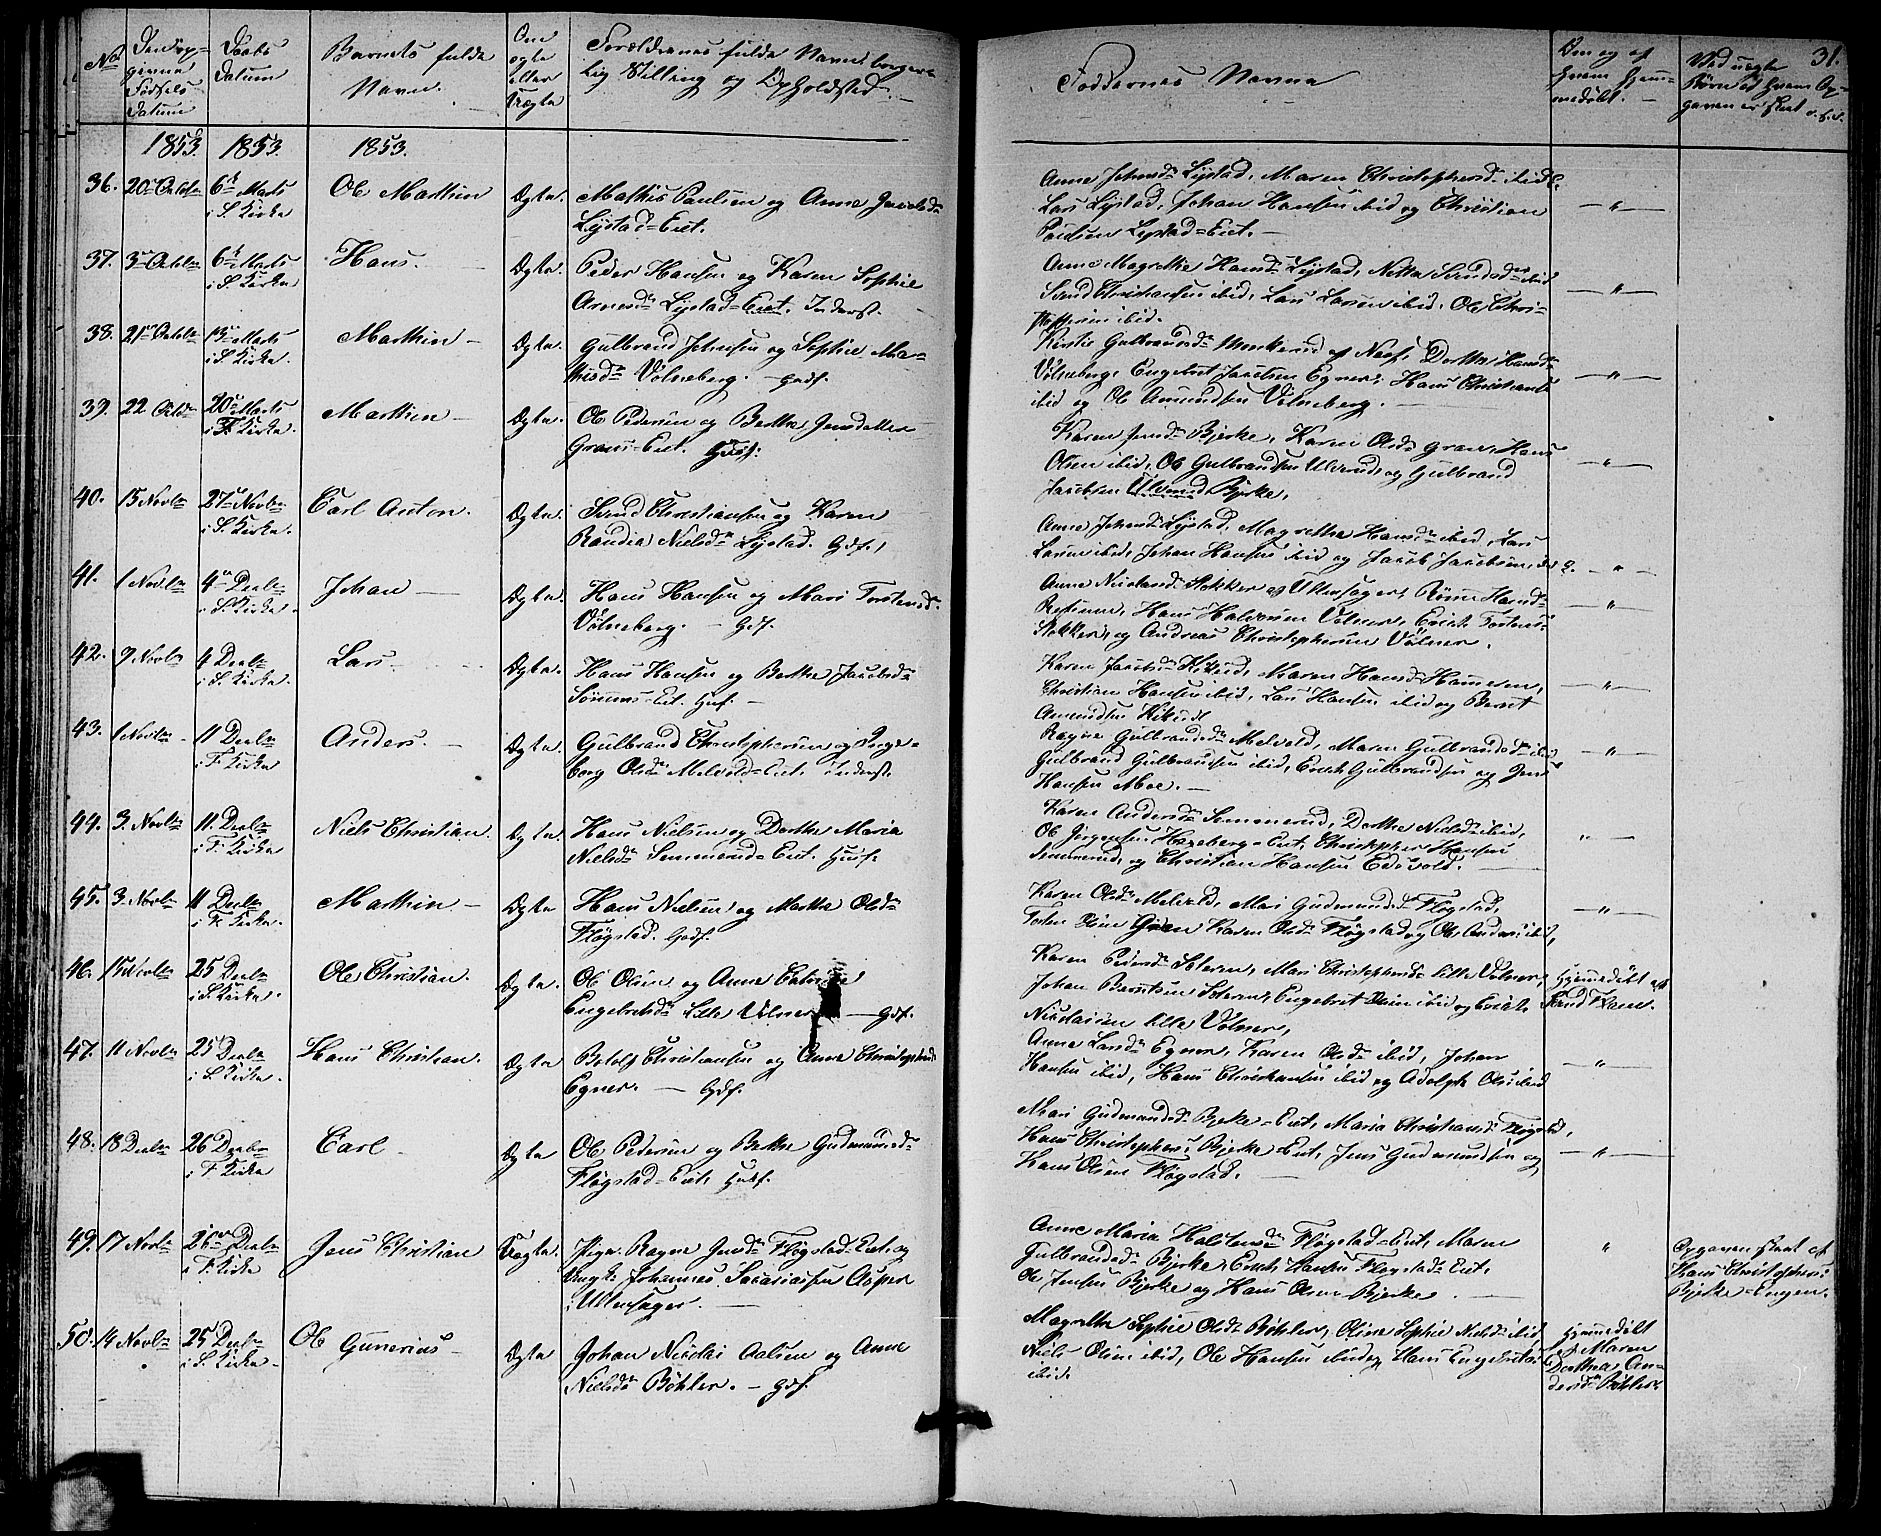 No
Den op-
givne
Fødsels
Datum
Daabs
Datum
Barnets fulde
Navn.
Om
ægte
eller
Uægte
Forældrenes fulde Navne, borger-
lig Stilling og Opholdsted.
Faddernes Navne
Om og af
hvem hjem-
medøbt.
Ved uægte
Børn
31.
1853. 1853. 1853.
36. 20 Octbr 6te Marts
i S. Kirke
Ole Mathin Ægte. Mathis Paulsen og Anne
Lystad-Eiet.
Lars Lystad, Johan Hansen ibid og Christian
Paulsen Lystad-Eiet.
37. 3 Octbr 6te Marts
i S. Kirke
Hans. Ægte. Peder Hansen og Karen Sophie
Arnesdr Lystad-Eiet. Inderst.
Anne Magrethe Hansdr Lystad,
Svend Christiansen ibid, Lars Larsen ibid, Ole Chri-
stophersen ibid.
38. 21 Octbr 13 Marts
i S. Kirke
Mathin Ægte. Gulbrand Johnsen og Sophie Ma-
thisdr Völneberg. Gdf.
Kirstie Gulbrandsdr af Næs, Dorthe Hansdr
Völneberg, Engebret Jacobsen Egner, Hans Christians:
ibid og Ole Amundsen Völneberg.
39. 22 Octbr 20 Marts
i F. Kirke.
Mathin Ægte. Ole Pedersen og Berthe Jensdatter
Gran-Eiet. Husf.
Karen Jensdr Bjerke, Karen Olsdr Gran, Hans
Olsen ibid, Ole Gulbrandsen og Gulbrand
Jacobsen Bjerke.
40. 15 Novbr 27 Novbr
i S. Kirke.
Carl Anton. Ægte. Svend Christiansen og Karen
Randea Nielsdr Lystad. Gdf.
Anne Johnsdr Lystad, Magrethe Hansdr ibid, Lars
Larsen ibid, Johan Hansen ibid og Jacob Jacobsen
41. 1 Novbr 4 Decbr
i S. Kirke.
Johan Ægte. Hans Hansen og Mari Torstensdr
Völneberg. Gdf.
Anne Nicolaisdr Stokker af Ullensager,
Hans Halvorsen Völner, Erich Torstens:
Stokker, og Andreas Christophersen Völner.
42. 9 Novbr 4 Decbr
i S. Kirke.
Lars. Ægte. Hans Hansen og Berthe Jacobsdr
Eiet. Husf.
Karen Jacobsdr Kikud, Maren Hansdr
Christian Hansen ibid, Lars Hansen ibid og Bernt
Amundsen Kikud
43. 1 Novbr 11 Decbr
i F. Kirke
Anders. Ægte. Gulbrand Christophersen og Inge-
borg Olsdr Melvold-Eiet. Inderst.
Ragne Gulbrandsdr Melvold, Maren Gulbrandsdr ibid,
Gulbrand Gulbrandsen ibid, Erich Gulbrandsen og Jens
Hansen Moe.
44. 3. Novbr 11. Decbr
i F. Kirke
Niels Christian. Ægte. Hans Nielsen og Dorthe Maria
Nielsdr Semmerud-Eiet. Husf.
Karen Andersdr Semmerud, Dorthe Nielsdr ibid,
Ole Jörgensen Hegeberg-Eiet, Christopher Hansen
Semmerud, og Christian Hansen Eidsvold.
45. 3. Novbr 11 Decbr
i F. Kirke.
Mathin Ægte Hans Nielsen og Marthe Olsdr
Flögstad. Gdf.
Karen Olsdr Melvold, Mari Gudmundsdr Flögstad,
Torsten Olsen Gran, Karen Olsdr Flögstad og Ole Anders: ibid.
46. 15 Novbr 25 Decbr
i S. Kirke.
Ole Christian. Ægte. Ole Olsen og Anne Cathrine
Engebretsdr Lille Völner Gdf.
Karen Pedersdr Mari Christophersdr Lille Völner,
Johan Berntsen Engebret Olsen ibid og Erich
Nicolaisen Lille Völner.
Hjemmedöbt af
47. 11 Novbr 25 Decbr
i S. Kirke.
Hans Christian. Ægte Christiansen og Anne Christophersdr
Egner. Gdf.
Anne Larsdr Egner, Karen Olsdr ibid, Johan
Hansen ibid, Hans Christiansen ibid og Adolph Ols: ibid
48. 18 Decbr 26 Decbr
i F. Kirke
Carl Ægte Ole Pedersen og Berthe Gudmundsdr
Flögstad-Eiet, Husf.
Mari Gudmundsdr Bjerke-Eiet, Maria Christiansdr Flögstad,
Hans Christophers: Bjerke-Eiet, Jens Gudmundsen og
Hans Olsen Flögstad.
49. 17 Novbr 26 Decbr
i F. Kirke
Jens Christian Uægte. Pige Ragne Jensdr Flögstad-Eiet, og
Ungk: Johannes Sacariasen Asper
i Ullensager.
Anne Maria Halstensdr Flögstad-Eiet, Maren
Gulbrandsdr Bjerke, Erich Hansen Flögstad-Eiet,
Ole Jensen Bjerke og Hans Olsen Bjerke.
Opgaven skeet af
Hans Christophers:
Bjerke-Engen.
50. 14 Novbr 25 Decbr
i S. Kirke
Ole Gunerius Ægte Johan Nicolai Aalsen og Anne
Nielsdr Böhler. Gdf.
Magrethe Sophie Olsdr Böhler, Oline Sophie Nielsdr ibid,
Niels Olsen ibid, Ole Hansen ibid og Hans Engebrets:
ibid.
Hjemmedöbt
af Maren
Dorthea An-
dersdr Böhler.